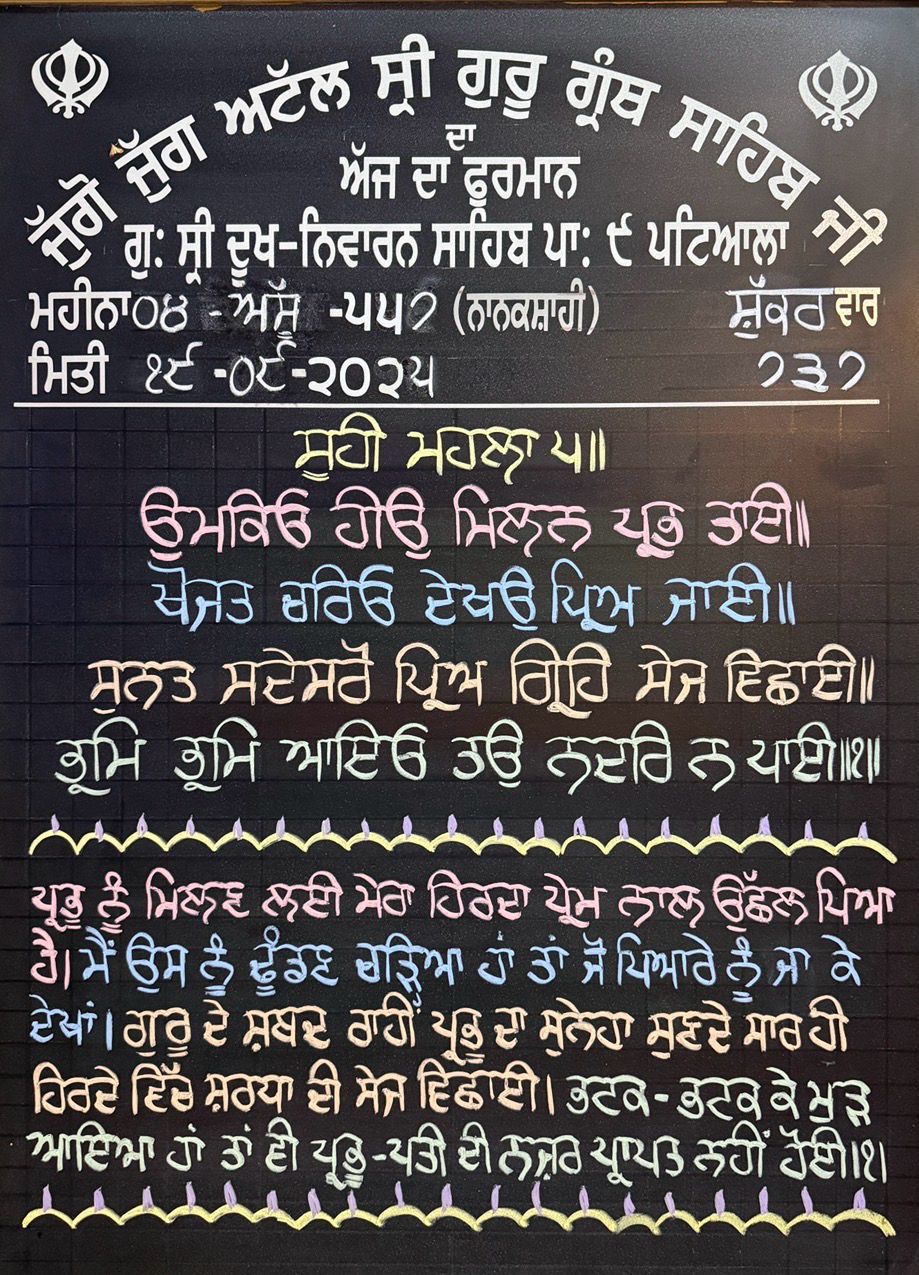 ਜੁੱਗੋ ਜੁੱਗ ਅਟੱਲ ਸ੍ਰੀ ਗੁਰੂ ਗ੍ਰੰਥ ਸਾਹਿਬ ਜੀ
ਦਾ
ਅੱਜ ਦਾ ਫੂਰਮਾਨ
ਗੁ: ਸ੍ਰੀ ਦੂਖ-ਨਿਵਾਰਨ ਸਾਹਿਬ ਪਾ: ੯ ਪਟਿਆਲਾ
ਮਹੀਨਾ ੦੪ - ਅੱਸੂ - ੫੫੭ (ਨਾਨਕਸ਼ਾਹੀ) ਸ਼ੁੱਕਰ ਵਾਰ
ਮਿਤੀ ੧੯ -੦੯ -੨੦੨੫ ੭੩੭
ਸੂਹੀ ਮਹਲਾ ੫॥
ਉਮਕਿਓ ਹੀਉ ਮਿਲਨ ਪ੍ਰਭ ਤਾਈ॥
ਖੋਜਤ ਚਰਿਓ ਦੇਖਉ ਪ੍ਰਿਅ ਜਾਈ॥
ਸੁਨਤ ਸਦੇਸਰੋ ਪ੍ਰਿਅ ਗ੍ਰਿਹਿ ਸੇਜ ਵਿਛਾਈ॥
ਭ੍ਰਮਿ ਭ੍ਰਮਿ ਆਇਓ ਤਉ ਨਦਰਿ ਨ ਪਾਈ॥੧॥
ਪ੍ਰਭੂ ਨੂੰ ਮਿਲਣ ਲਈ ਮੇਰਾ ਹਿਰਦਾ ਪ੍ਰੇਮ ਨਾਲ ਉਛੱਲ ਪਿਆ
ਹੈ। ਮੈਂ ਉਸ ਨੂੰ ਢੂੰਡਣ ਚੜ੍ਹਿਆ ਹਾਂ ਤਾਂ ਜੋ ਪਿਆਰੇ ਨੂੰ ਜਾ ਕੇ
ਦੇਖਾਂ। ਗੁਰੂ ਦੇ ਸ਼ਬਦ ਰਾਹੀਂ ਪ੍ਰਭੂ ਦਾ ਸੁਨੇਹਾ ਸੁਣਦੇ ਸਾਰ ਹੀ
ਹਿਰਦੇ ਵਿੱਚ ਸ਼ਰਧਾ ਦੀ ਸੇਜ ਵਿਛਾਈ। ਭਟਕ-ਭਟਕ ਕੇ ਮੁੜ
ਆਇਆ ਹਾਂ ਤਾਂ ਵੀ ਪ੍ਰਭੂ-ਪਤੀ ਦੀ ਨਜ਼ਰ ਪ੍ਰਾਪਤ ਨਹੀਂ ਹੋਈ॥੧।